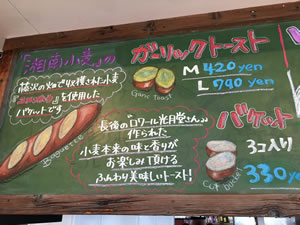 『湘南小麦』の
藤沢の畑で収穫された小麦
を使用した
バケットです
Baguette
ガーリックトースト
M 420 yen
L 790 yen
Garlic Toast
長後の『ロワール光月堂さん』で
作られた
小麦本来の味と香りが
お楽しみ頂ける
ふんわり美味しいトースト!
バケット
3コ入り
330 yen